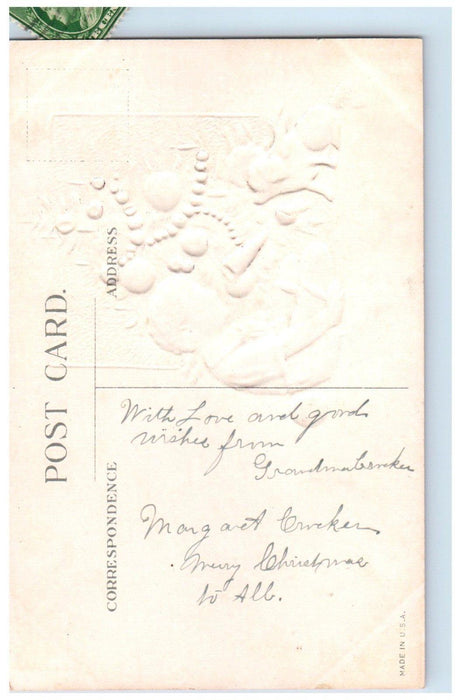 POST CARD.
ADDRESS
CORRESPONDENCE
With Love and good
wishes from
Grandma Crocker
Margaret Crocker
Merry Christmas
to All.
MADE IN U.S.A.